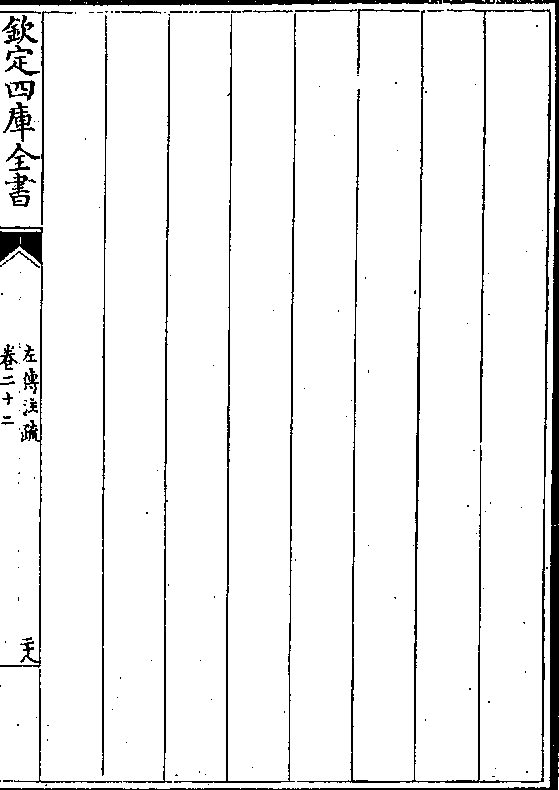 欽定四庫全書
左傳注疏
卷二十二